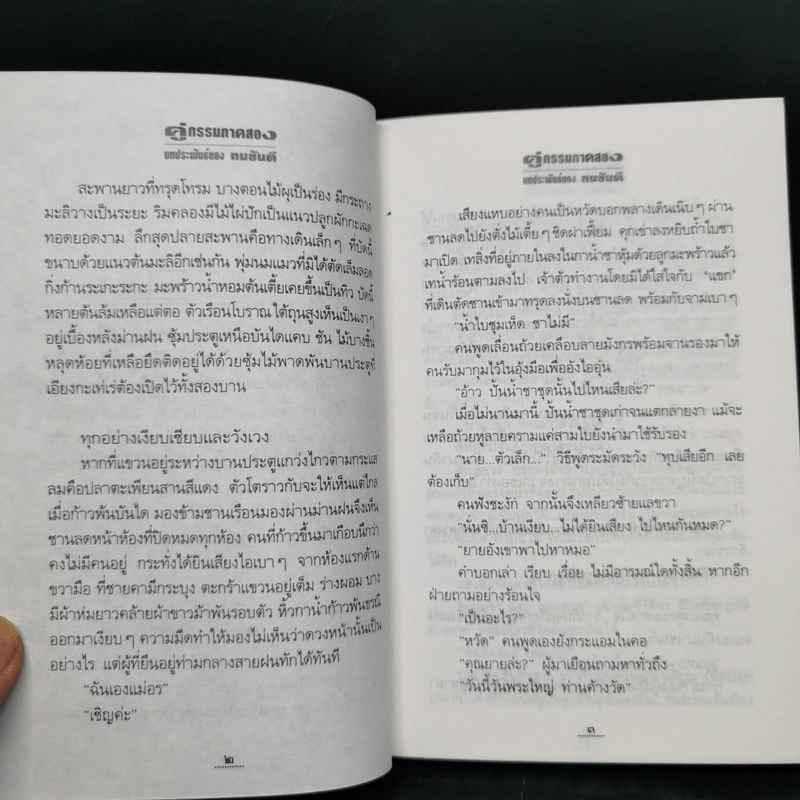 คู่กรรมภาคสอง
บทประพันธ์ของ ทมยันตี
สะพานยาวที่ทรุดโทรม บางตอนไม้ผุเป็นร่อง มีกระถาง
มะลิวางเป็นระยะ ริมคลองมีไม้ไผ่ปักเป็นแนวปลูกผักกะเฉด
ทอดยอดงาม ลึกสุดปลายสะพานคือทางเดินเล็กๆ ที่บัดนี้
ขนาบด้วยแนวต้นมะลิอีกเช่นกัน พุ่มนมแมวที่มิได้ตัดเล็มลอด
กิ่งก้านระเกะระกะ มะพร้าวน้ำหอมต้นเตี้ยเคยขึ้นเป็นทิว บัดนี้
หลายต้นล้มเหลือแต่ตอ ตัวเรือนโบราณใต้ถุนสูงเห็นเป็นเงาๆ
อยู่เบื้องหลังม่านฝน ซุ้มประตูเหนือบันไดแคบ ชัน ไม้บางชิ้น
หลุดห้อยที่เหลือยึดติดอยู่ได้ด้วยซุ้มไม้พาดพันบานประตูที่
เอียงกะเท่เร่ต้องเปิดไว้ทั้งสองบาน
ทุกอย่างเงียบเชียบและวังเวง
หากที่แขวนอยู่ระหว่างบานประตูแกว่งไกวตามกระแส
ลมคือปลาตะเพียนสานสีแดง ตัวโตราวกับจะให้เห็นแต่ไกล
เมื่อก้าวพ้นบันได มองข้ามชานเรือนมองผ่านม่านฝนจึงเห็น
ชานลดหน้าห้องที่ปิดหมดทุกห้อง คนที่ก้าวขึ้นมาเกือบนึกว่า
คงไม่มีคนอยู่ กระทั่งได้ยินเสียงไอเบาๆ จากห้องแรกด้าน
ขวามือ ที่ชายคามีกระบุง ตะกร้าแขวนอยู่เต็ม ร่างผอม บาง
มีผ้าห่มยาวคล้ายผ้าขาวม้าพันรอบตัว หิ้วกาน้ำก้าวพ้นธรณี
ออกมาเงียบๆ ความมืดทำให้มองไม่เห็นว่าดวงหน้านั้นเป็น
อย่างไร แต่ผู้ที่ยืนอยู่ท่ามกลางสายฝนทักได้ทันที
“ฉันเองแม่อร”
“เชิญค่ะ”
๒
คู่กรรมภาคสอง
บทประพันธ์ของ ทมยันตี
เสียงแหบอย่างคนเป็นหวัดบอกพลางเดินเนิบๆ ผ่าน
ชานลดไปยังตั่งไม้เตี้ยๆ ชิดฝาเฟี้ยม คุกเข่าลงหยิบถ้ำใบชา
มาเปิด เทสิ่งที่อยู่ภายในลงในกาน้ำชาหุ้มด้วยลูกมะพร้าวแล้ว
เทน้ำร้อนตามลงไป เจ้าตัวทำงานโดยมิได้ใส่ใจกับ ‘แขก’
ที่เดินตัดชานเข้ามาทรุดลงนั่งบนชานลด พร้อมกับจามเบาๆ
“น้ำใบชุมเห็ด ชาไม่มี”
คนพูดเลื่อนถ้วยเคลือบลายมังกรพร้อมจานรองมาให้
คนรับมากุมไว้ในอุ้งมือเพื่ออังไออุ่น
“อ้าว ปั้นน้ำชาชุดนั้นไปไหนเสียล่ะ?”
เมื่อไม่นานมานี้ ปั้นน้ำชาชุดเก่าจนแตกลายงา แม้จะ
เหลือถ้วยหูลายครามแค่สามใบยังนำมาใช้รับรอง
“นาย...ตัวเล็ก...” วิธีพูดระมัดระวัง “ทุบเสียอีก เลย
ต้องเก็บ”
คนฟังชะงัก จากนั้นจึงเหลียวซ้ายแลขวา
“นั่นซิ...บ้านเงียบ...ไม่ได้ยินเสียง ไปไหนกันหมด?”
“ยายอังเขาพาไปหาหมอ”
คำบอกเล่า เรียบ เรื่อย ไม่มีอารมณ์ใดทั้งสิ้น หากอีก
ฝ่ายถามอย่างร้อนใจ
“เป็นอะไร?”
“หวัด” คนพูดเองยังกระแอมในคอ
“คุณยายล่ะ?” ผู้มาเยือนถามหาทั่วถึง
“วันนี้วันพระใหญ่ ท่านค้างวัด”
๓